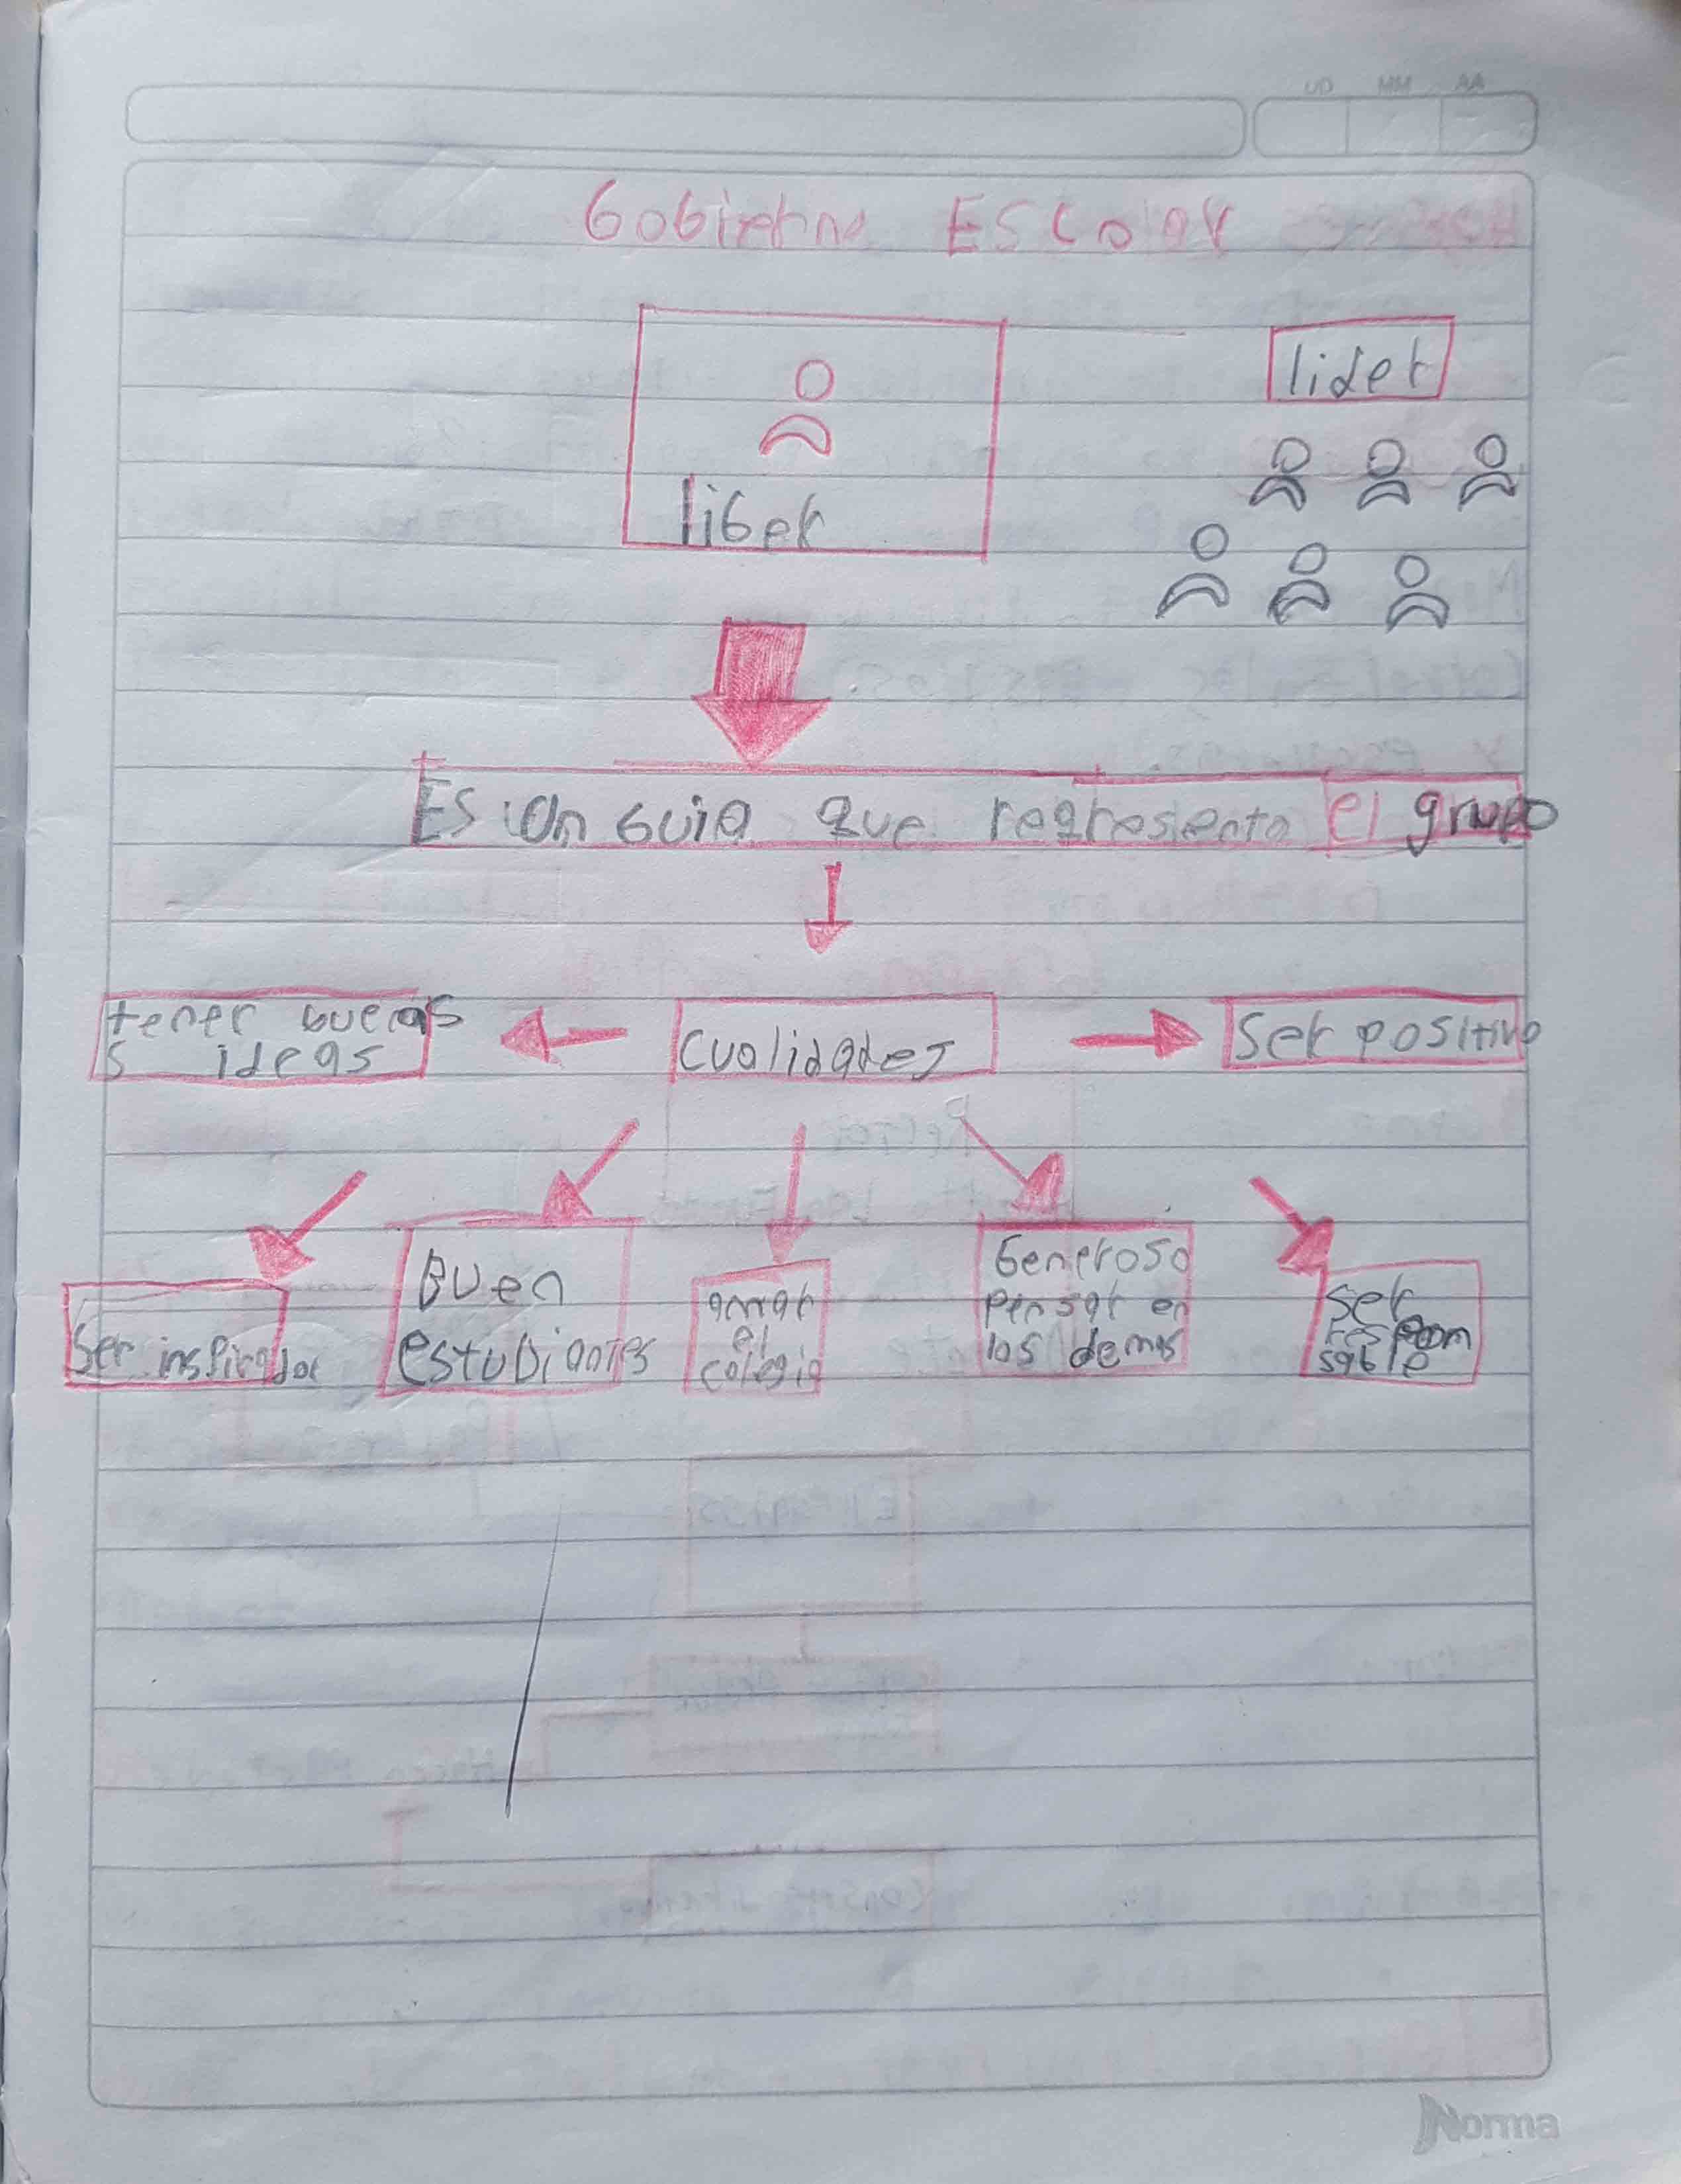 DD MM AA
Gobierno Escolar
lider
liber
Es un guia que representa el grupo
tener buenas
s ideas
cualidades
Ser positivo
Buen
estudiantes
Ser inspirador
amar
el
colegio
Generoso
Pensar en
los demas
Ser
respon
sable
Norma